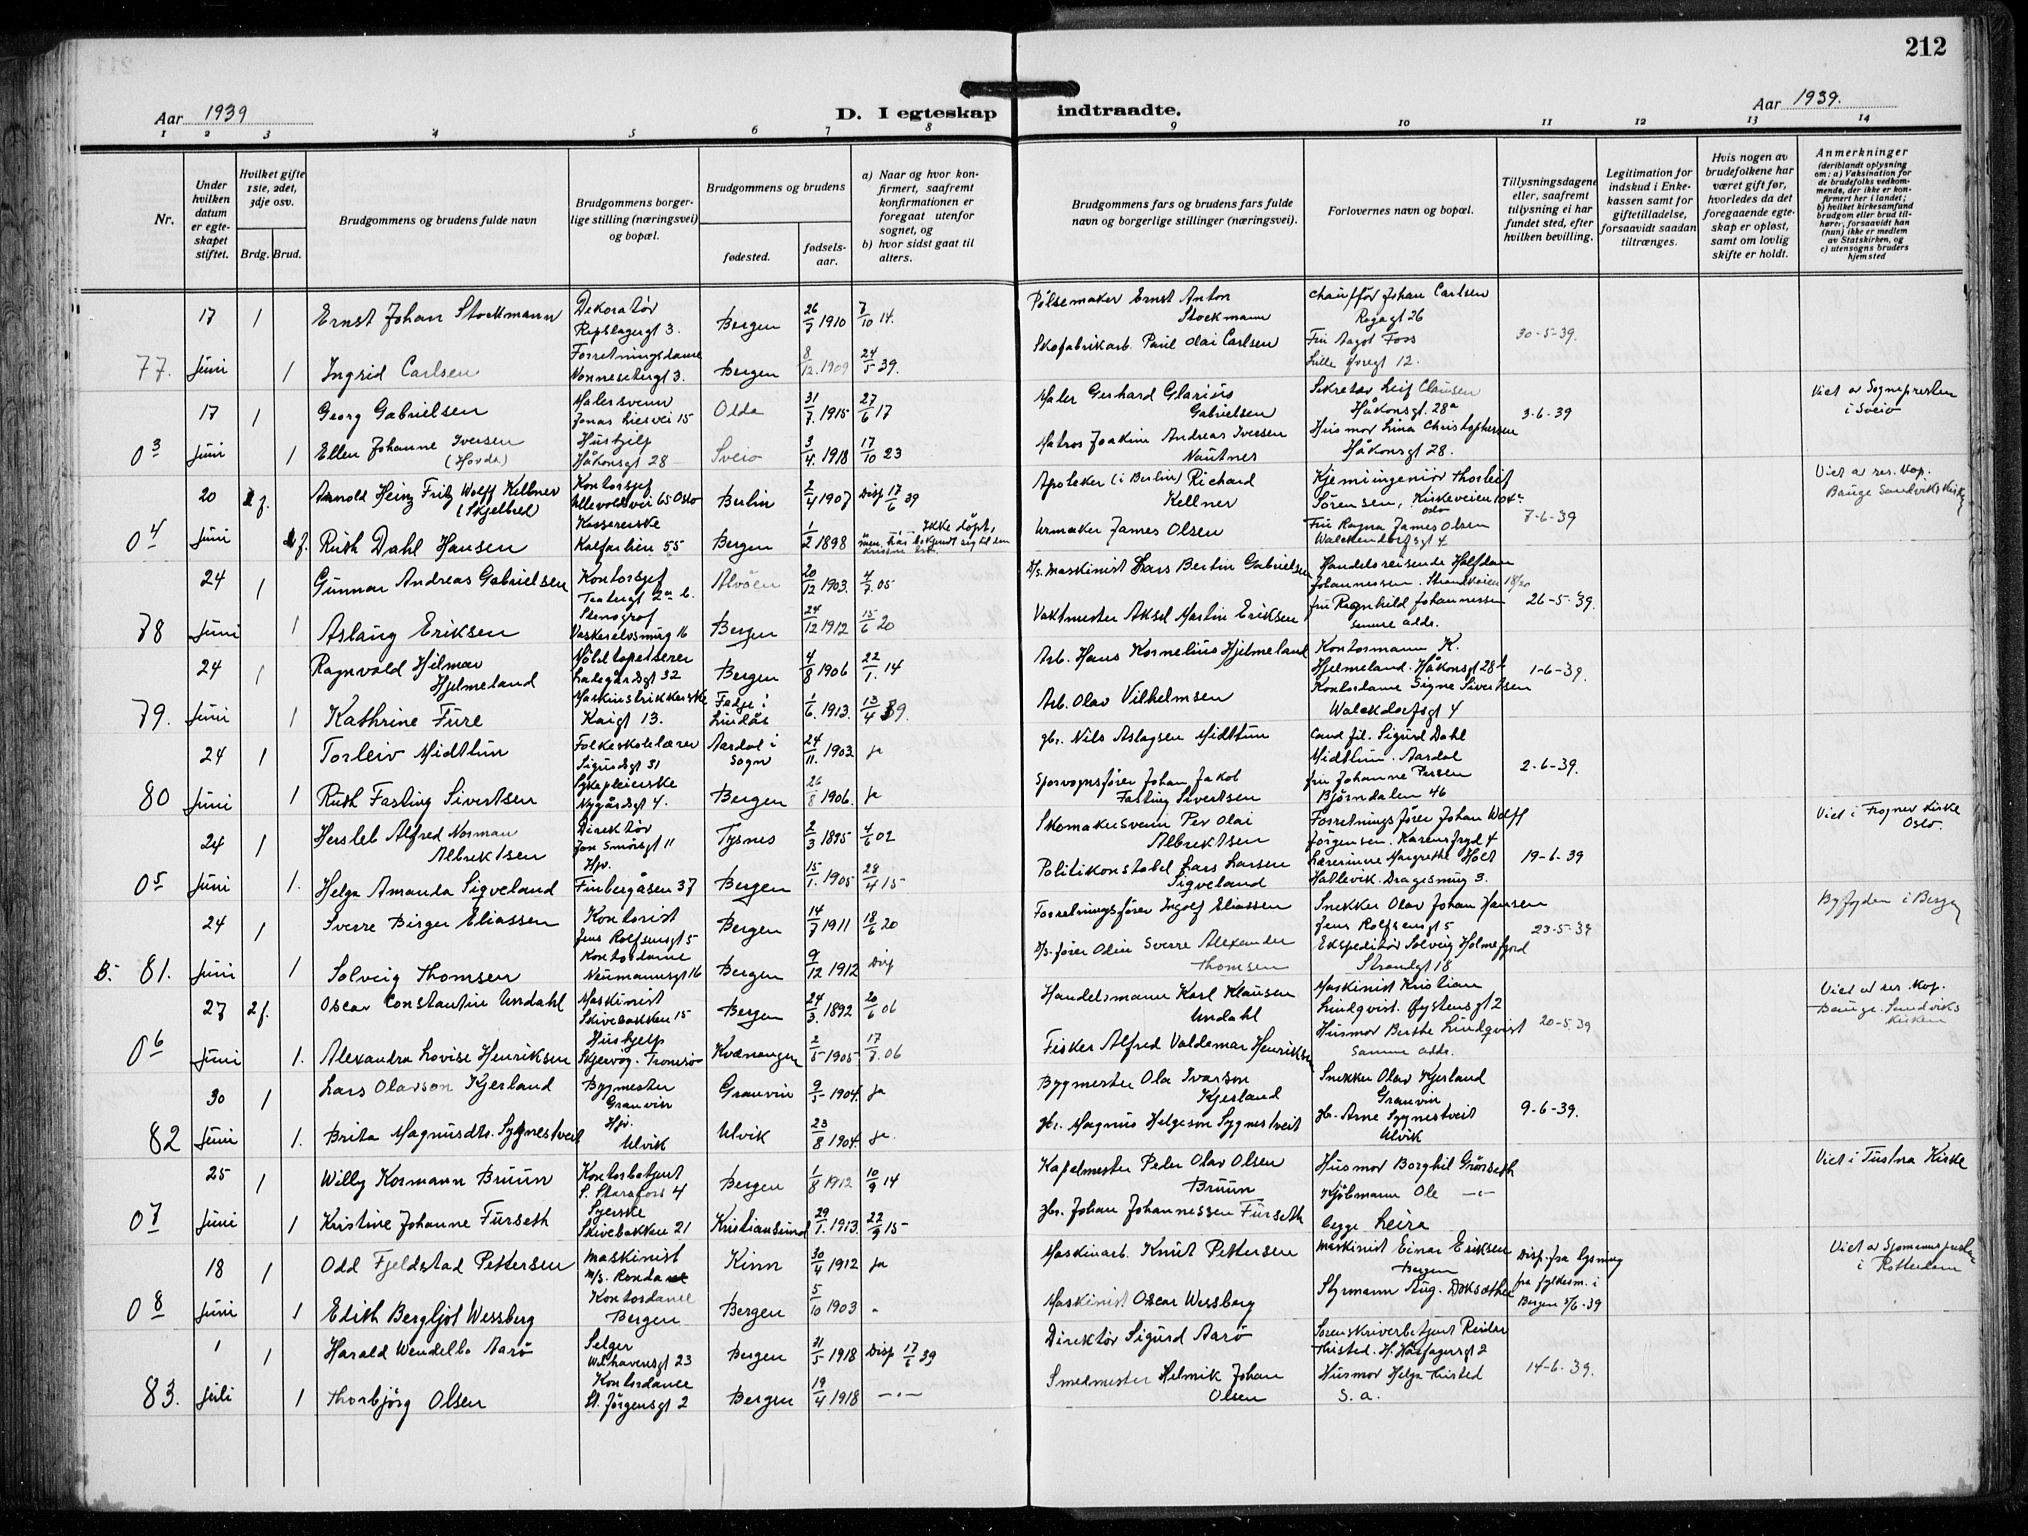 212
Aar 1939
D. I egteskap indtraadte.
Aar 1939.
1 2 3 4 5 6 7 8 9 10 11 12 13 14
Nr.
Under hvilken datum er egteskapet stiftet.
Hvilket gifte 1ste, 2det, 3dje osv.
Brdg. Brud.
Brudgommens og brudens fulde navn
Brudgommens borgerlige stilling (næringsvei) og bopæl.
Brudgommens og brudens
fødested.
fødselsaar.
a) Naar og hvor konfirmert, saafremt konfirmationen er foregaat utenfor sognet, og
b) hvor sidst gaat til alters.
Brudgommens fars og brudens fars fulde navn og borgerlige stillinger (næringsvei).
Forlovernes navn og bopæl.
Tillysningsdagene eller, saafremt tillysning ei har fundet sted, efter hvilken bevilling.
Legitimation for indskud i Enkekassen samt for giftetilladelse, forsaavidt saadan tiltrænges.
Hvis nogen av brudefolkene har været gift før, hvorledes da det foregaaende egteskap er opløst, samt om lovlig skifte er holdt.
Anmerkninger
(deriblandt oplysning om: a) Vaksination for de brudefolks vedkommende, der ikke er konfirmert her i landet; b) hvilket kirkesamfund brudgom eller brud tilhører, forsaavidt han (hun) ikke er medlem av Statskirken, og c) utensogns bruders hjemsted
17 1 Ernst Johan Stockmann Dekoratør Repslagergt 3. Bergen 26/7 1910 7/10 14. Pølsemaker Ernst Anton Stockmann Chauffør Johan Carlsen 30-5-39.
77. Juni 1 Ingrid Carlsen Forretningsdame Nonnesetergt 3. Bergen 8/12 1909 24/5 39. Skofabrikarb. Paul Olai Carlsen Fru Aagot Foss Lille Øvregt 12.
17 1 Georg Gabrielsen Malersvenn Jonas Liesvei 15 Odda 31/7 1915 27/6 17 Maler Gerhard Glarius Gabrielsen Sekretær Leif Clausen Håkonsgt. 28a 3-6-39 Viet av Sognepresten i Sveio
0 3 Juni 1 Ellen Johanne Iversen (Hovda) Hushjelp Håkonsgt 28 Sveio 3/4 1918 17/10 23 Matros Joakim Andreas Iversen Nautnes Husmor Lina Christophersen Håkonsgt 28.
20 2 f. Arnold Heinz Fritz Wolff Kellner (Skjelbred) Kontorsjef Ullevoldsvei 65 Oslo Berlin 2/4 1907 Disp 17/6 39 Apoteker (i Berlin) Richard Kellner Kjemiingeniør Thorleif Sørensen, Kirkeveien 104a Oslo 7-6-39 Viet av res. Kap. Bauge Sandvikskirk
0 4 Juni 2 f. Ruth Dahl Hansen Kassererske Kalfarlien 55 Bergen 1/2 1898 Ikke døpt, men har bekjendt sig til den kristne tro. Urmaker James Olsen Fru Ragna James Olsen Walckendorfsgt 4
24 1 Gunnar Andreas Gabrielsen Kontorsjef Teatergt 2a b. Alvøen 20/12 1903. 4/7 05 D/s. Maskinist Lars Bertin Gabrielsen Handelsreisende Halfdan Johannessen. Strandveien 18/20 26-5-39.
78 Juni 1 Aslaug Eriksen Stenograf Vaskerelvsmug 16 Bergen 24/12 1912 15/6 20 Vaktmester Aksel Martin Eriksen fru Ragnhild Johannessen samme adds.
24 1 Ragnvald Hilmar Hjelmeland Møbeltapetserer Ladegårdsgt 32 Bergen 4/8 1906 22/1. 14 Arb. Hans Kornelius Hjelmeland Kontormann K. Hjelmeland. Håkonsgt 28 b 1-6-39.
79. Juni 1 Kathrine Fure Maskinstrikkerske Kaigt 13. Fedje i Lindås 1/6. 1913. 13/4 39. Arb. Olav Vilhelmsen Kontordame Signe Sivertsen Walckdorfsgt 4
24 1 Torleiv Midttun Folkeskolelærer Sigurdsgt 31 Aardal i Sogn 24/11. 1903. ja gbr. Nils Aslagsen Midttun Cand fil. Sigurd Dahl Midttun. Aardal 2-6-39.
80 Juni 1 Ruth Fasting Sivertsen Sykepleierske Nygårdsgt 4. Bergen 26/8 1906. ja Sporvognsfører Johan Jakob Fasting Sivertsen fru Johanne Persen Bjørndalen 46
24 1 Hersleb Alfred Norman Albrektsen Direktør Jon Smørsgt 11 Tysnes 2/3 1895 4/6 02 Skomakersvenn Per Olai Albrektsen Forretningsfører Johan Wolff Jørgensen. Karensfryd 4 19-6-39 Viet i Frogner Kirke Oslo.
0 5 Juni 1. Helga Amanda Sigveland Hpv. Finbergåsen 37 Bergen 15/1. 1905 28/4 15 Politikonstabel Lars Larsen Sigveland Lærerinne Margrethe Holt Hatlevik. Dragesmug 3.
24 1 Sverre Birger Eliassen Kontorist Jens Rolfsensgt 5 Bergen 14/7 1911 18/6 20 Forretningsfører Ingolf Eliassen Snekker Olav Johan Hansen Jens Rolfsensgt 5 23-5-39 Byfogden i Bergen
B. 81. Juni 1 Solveig Thomsen Kontordame Neumannsgt 16 Bergen 9/12 1912 Disp D/s. fører Odin Sverre Alexander Thomsen Ekspeditør Solveig Holmefjord Strandgt 18
27 2 f. Oscar Constantin Undahl Maskinist Skivebakken 15 Bergen 24/3. 1892 20/6 06 Handelsmann Karl Klausen Undahl Maskinist Kristian Lindqvist. Øystensgt 2 20-5-39 Viet av res Kap. Bauge. Sandviks kirken
0 6 Juni 1. Alexandra Lovise Henriksen Hushjelp Skjervøg. Tromsø Kvænangen 2/5 1905 17/7. 06 Fisker Alfred Valdemar Henriksen Husmor Berthe Lindqvist Samme adds.
30 1 Lars Olavson Kjerland Bygmester Granvin Granvin 9/5 1904. ja Bygmester Ola Ivarson Kjerland Snekker Olav Kjerland Granvin 9-6-39.
82 Juni 1. Brita Magnusdtr. Sygnestveit Hpv. Ulvik Ulvik 23/8 1904. ja. gbr. Magnus Helgeson Sygnestveit gbr. Arne Sygnestveit Ulvik
25 1 Willy Kormann Bruun Kontorbetjent Bergen 1/8 1912 10/9 14 Kapelmester Peder Olav Olsen Bruun Husmor Borghil Grønseth Viet i Tustna Kirke
0 7 Juni 1 Kristine Johanne Furseth Syerske Skivebakken 21 Kristiansund 29/1. 1913. 22/9 15 gbr. Johan Johannessen Furseth Kjøbmann Ole —"— begge Leira
18 1 Odd Fjeldstad Pettersen Maskinist M/S. Ronda Kinn 30/4 1912 ja Maskinarb. Knut Pettersen Maskinist Einar Eriksen Bergen Disp. fra lysning fra fylkesm. i Bergen 5/6-39 Viet av Sjømannsprest i Rotterdam
0 8 Juni 1 Edith Bergljot Wessberg Kontordame Bergen Bergen 5/10 1903 " Maskinist Oscar Wessberg Styrmann Aug.
1 1 Harald Wendelbo Aarø Selger Welhavensgt 23 Bergen 31/5 1918 Disp 17/6 39 Direktør Sigurd Aarø Sorenskriverbetjent Reidar Thisted. H. Hårfagersgt 2 14-6-39.
83. Juli 1 Thorbjørg Olsen Kontordame St. Jørgensgt 2 Bergen 19/4 1918 —"— Smedmester Helmik Johan Olsen Husmor Helga Thisted S. a.